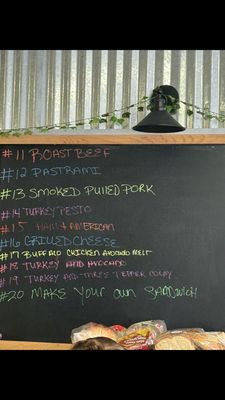 #11 ROAST BEEF
#12 PASTRAMI
#13 SMOKED PULLED PORK
#14 TURKEY PESTO
#15 HAM & AMERICAN
#16 GRILLED CHEESE
#17 BUFFALO CHICKEN AVOCADO MELT
#18 TURKEY AND AVOCADO
#19 TURKEY AND THREE PEPPER COLBY
#20 MAKE YOUR OWN SANDWICH